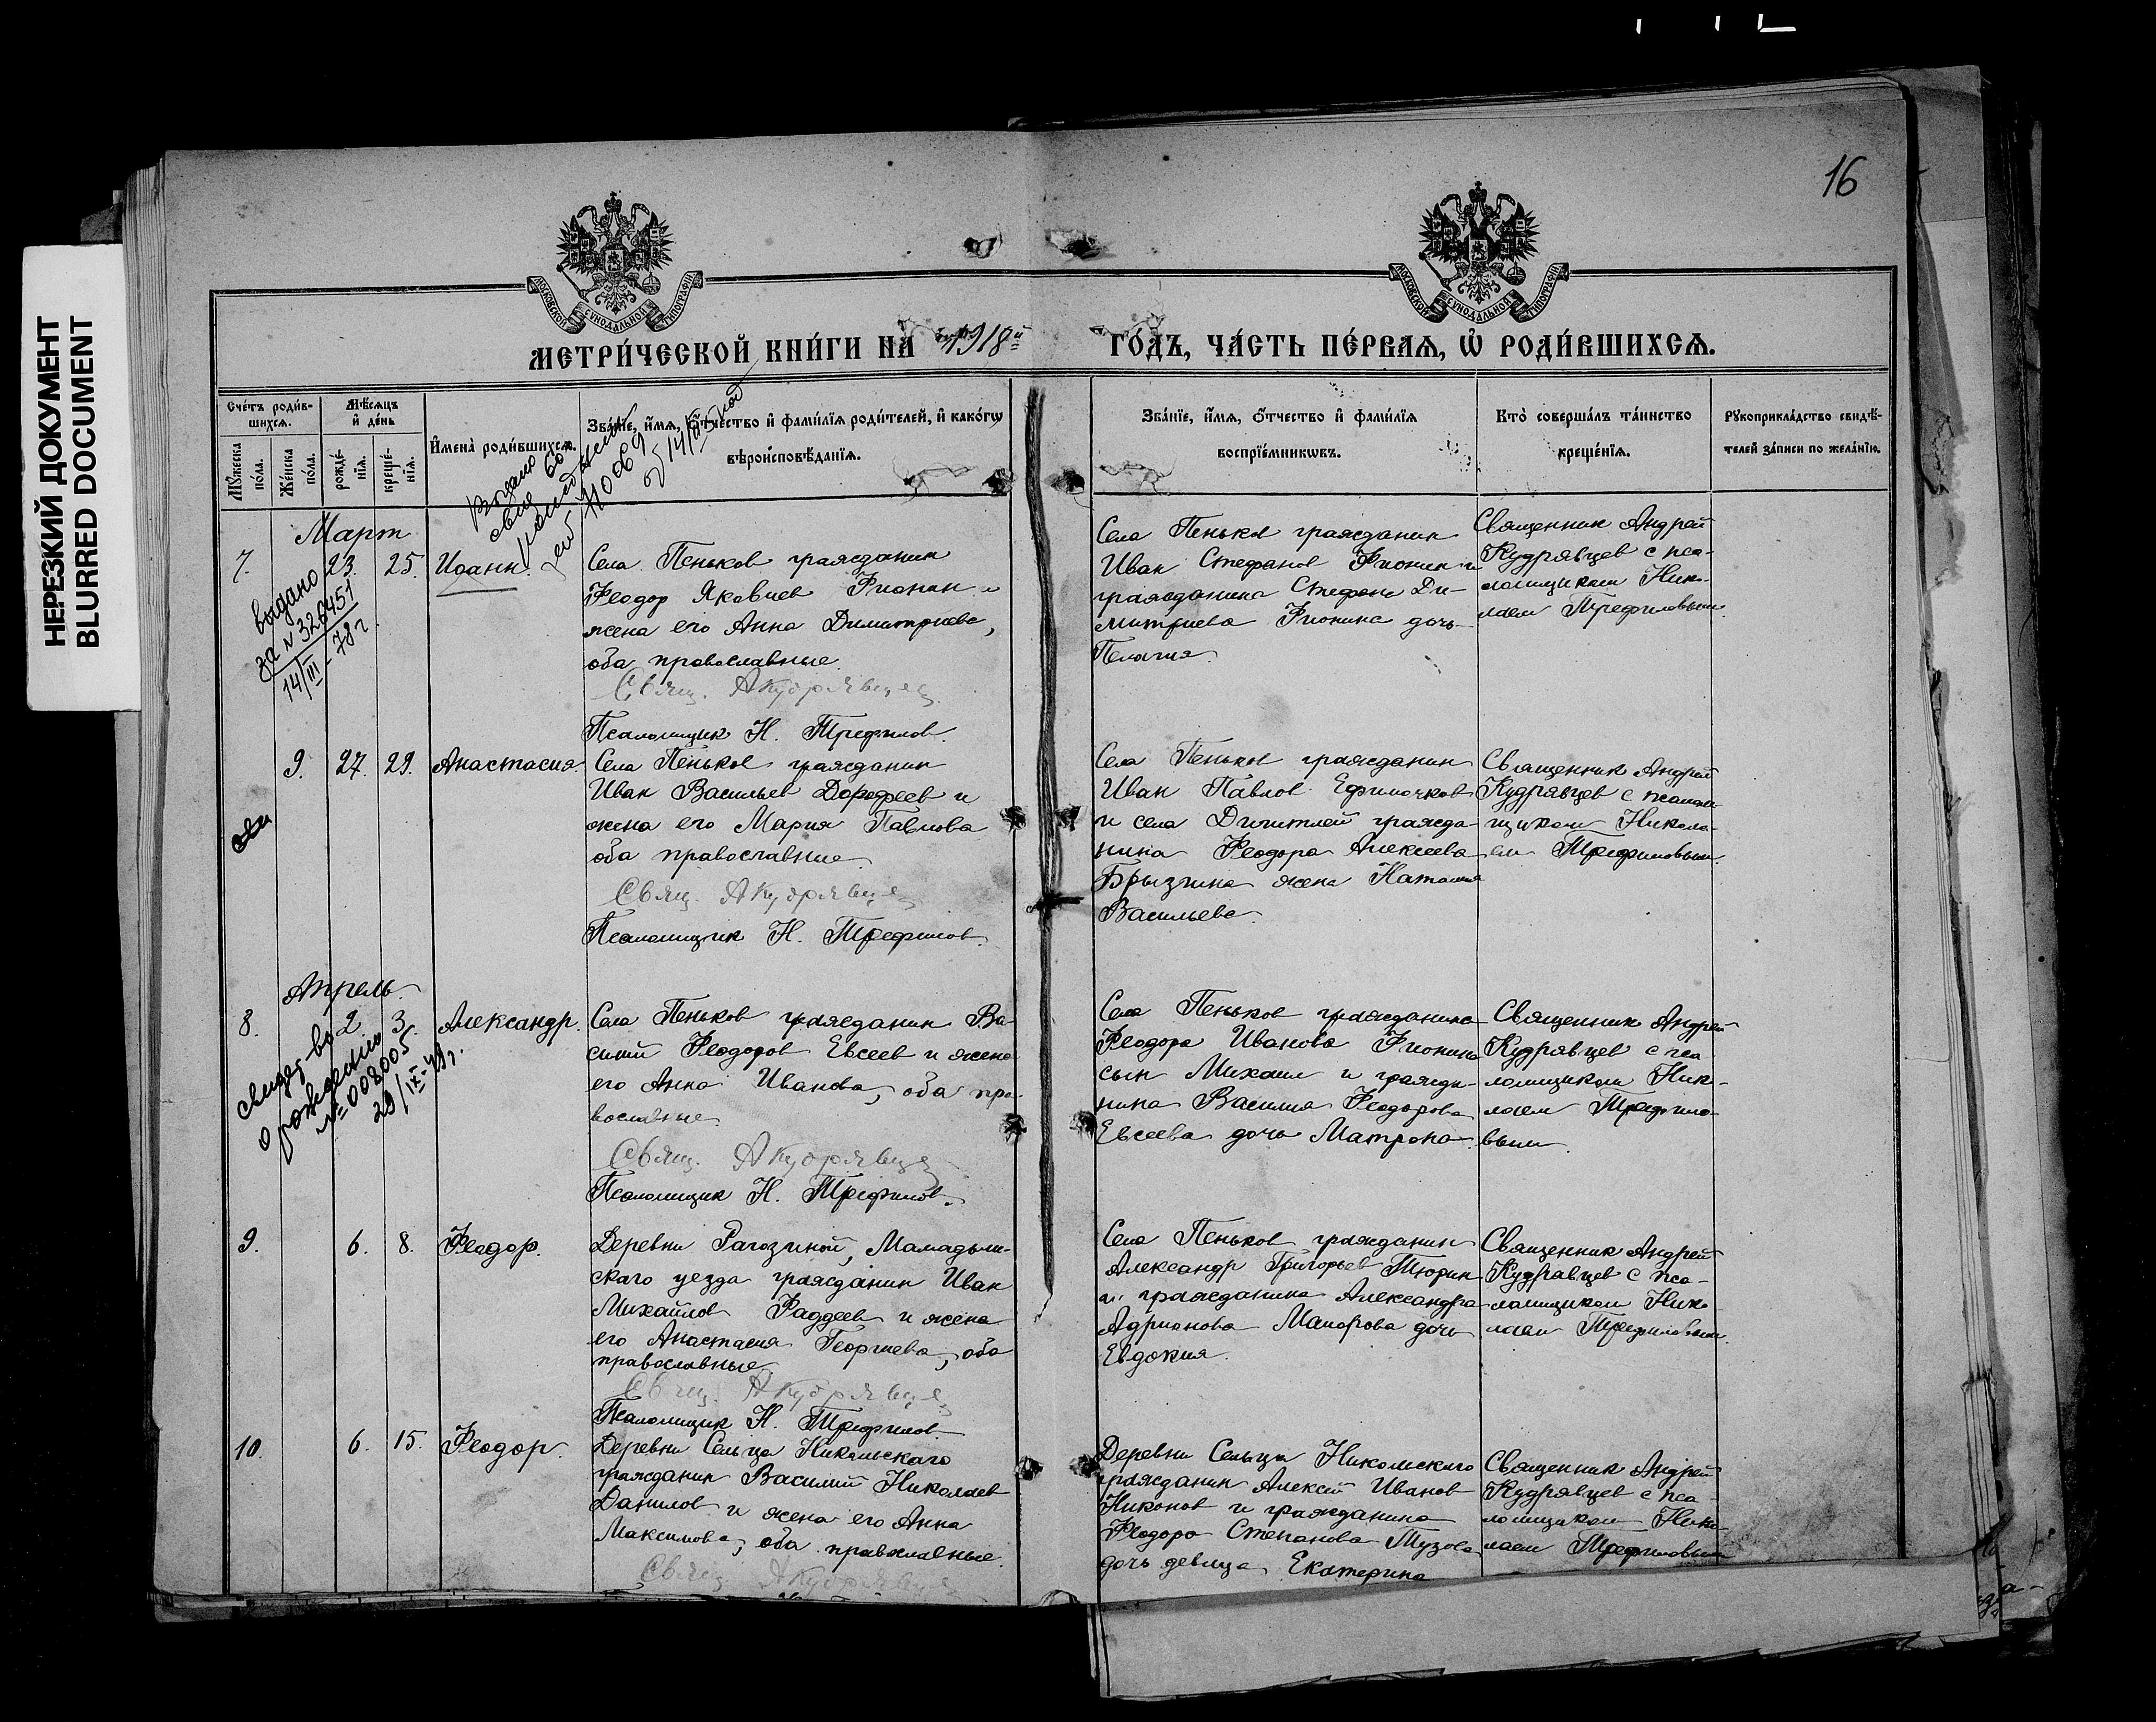 НЕРЕЗКИЙ ДОКУМЕНТ
BLURRED DOCUMENT
16
МОСКОВСКОЙ СѴНОДАЛЬНОЙ ТИПОГРАФІИ
МОСКОВСКОЙ СѴНОДАЛЬНОЙ ТИПОГРАФІИ
МЕТРИ́ЧЕСКОЙ КНИ́ГИ НА̀ 1918й ГО́ДЪ, ЧА́СТЬ ПЕ́РВАЯ, Ѡ҆ РОДИ́ВШИХСЯ.
Сче́тъ роди́в-
шихся.
Мꙋ́жеска
по́ла.
Же́нска
по́ла.
Мѣ́сяцъ
и҆ де́нь
рожде́-
нїя.
креще́-
нїя.
И҆мена̀ роди́вшихся.
Зва́нїе, и҆́мя, ѻ҆́тчество и҆ фами́лїя роди́телей, и҆ како́гѡ
вѣроисповѣ́данїя.
Зва́нїе, и҆́мя, ѻ҆́тчество и҆ фами́лїя
воспрїе́мникѡвъ.
Кто̀ соверша́лъ та́инство
креще́нїя.
Рꙋкоприкла́дство свидѣ́-
телей за́писи по жела́нїю.
Март
7. 23. 25. Иоанн.
выдано
за № 326451
14/III-78 г.
Выдано
Села Пеньков гражданин
Феодор Яковлев Фионин и
жена его Анна Димитриева,
оба православные.
Свящ. А Кудрявцев
Псаломщик Н. Трефилов.
Села Пеньков гражданин
Иван Стефанов Фионин и
гражданина Стефана Ди-
митриева Фионина дочь
Пелагия.
Священник Андрей
Кудрявцев с пса-
ломщиком Нико-
лаем Трефиловым.
9. 27. 29. Анастасия.
Села Пеньков гражданин
Иван Васильев Дорофеев и
жена его Мария Павлова
оба православные
Свящ. А Кудрявцев
Псаломщик Н. Трефилов.
Села Пеньков гражданин
Иван Павлов Ефимочков
и села гражда-
нина Феодора Алексеева
Брызгина жена Наталия
Васильева.
Священник Андрей
Кудрявцев с псалом-
щиком Никола-
ем Трефиловым.
Апрель.
8. 2. 3. Александр.
свидет-во
о рождении
№ 008005.
29/IX-49 г.
Села Пеньков гражданин Ва-
силий Феодоров Евсеев и жена
его Анна Иванова, оба пра-
вославные.
Свящ. А Кудрявцев
Псаломщик Н. Трефилов.
Села Пеньков гражданина
Феодора Иванова Фионина
сын Михаил и гражда-
нина Василия Феодорова
Евсеева дочь Матрона
Священник Андрей
Кудрявцев с пса-
ломщиком Нико-
лаем Трефило-
вым
9. 6. 8. Феодор.
Деревни Рагозиной, Мамадыш-
скаго уезда гражданин Иван
Михайлов Фаддеев и жена
его Анастасия Георгиева, оба
православные
Свящ. А Кудрявцев
Псаломщик Н. Трефилов.
Села Пеньков гражданин
Александр Григорьев Тюрин
и гражданина Александра
Адрианова Маиорова дочь
Евдокия.
Священник Андрей
Кудрявцев с пса-
ломщиком Нико-
лаем Трефиловым.
10. 6. 15. Феодор.
Деревни Сельца Никольскаго
гражданин Василий Николаев
Данилов и жена его Анна
Максимова, оба православные.
Свящ. А Кудрявцев
Деревни Сельца Никольскаго
гражданин Алексей Иванов
Никонов и гражданина
Феодора Степанова Тузова
дочь девица Екатерина
Священник Андрей
Кудрявцев с пса-
ломщиком Нико-
лаем Трефиловым